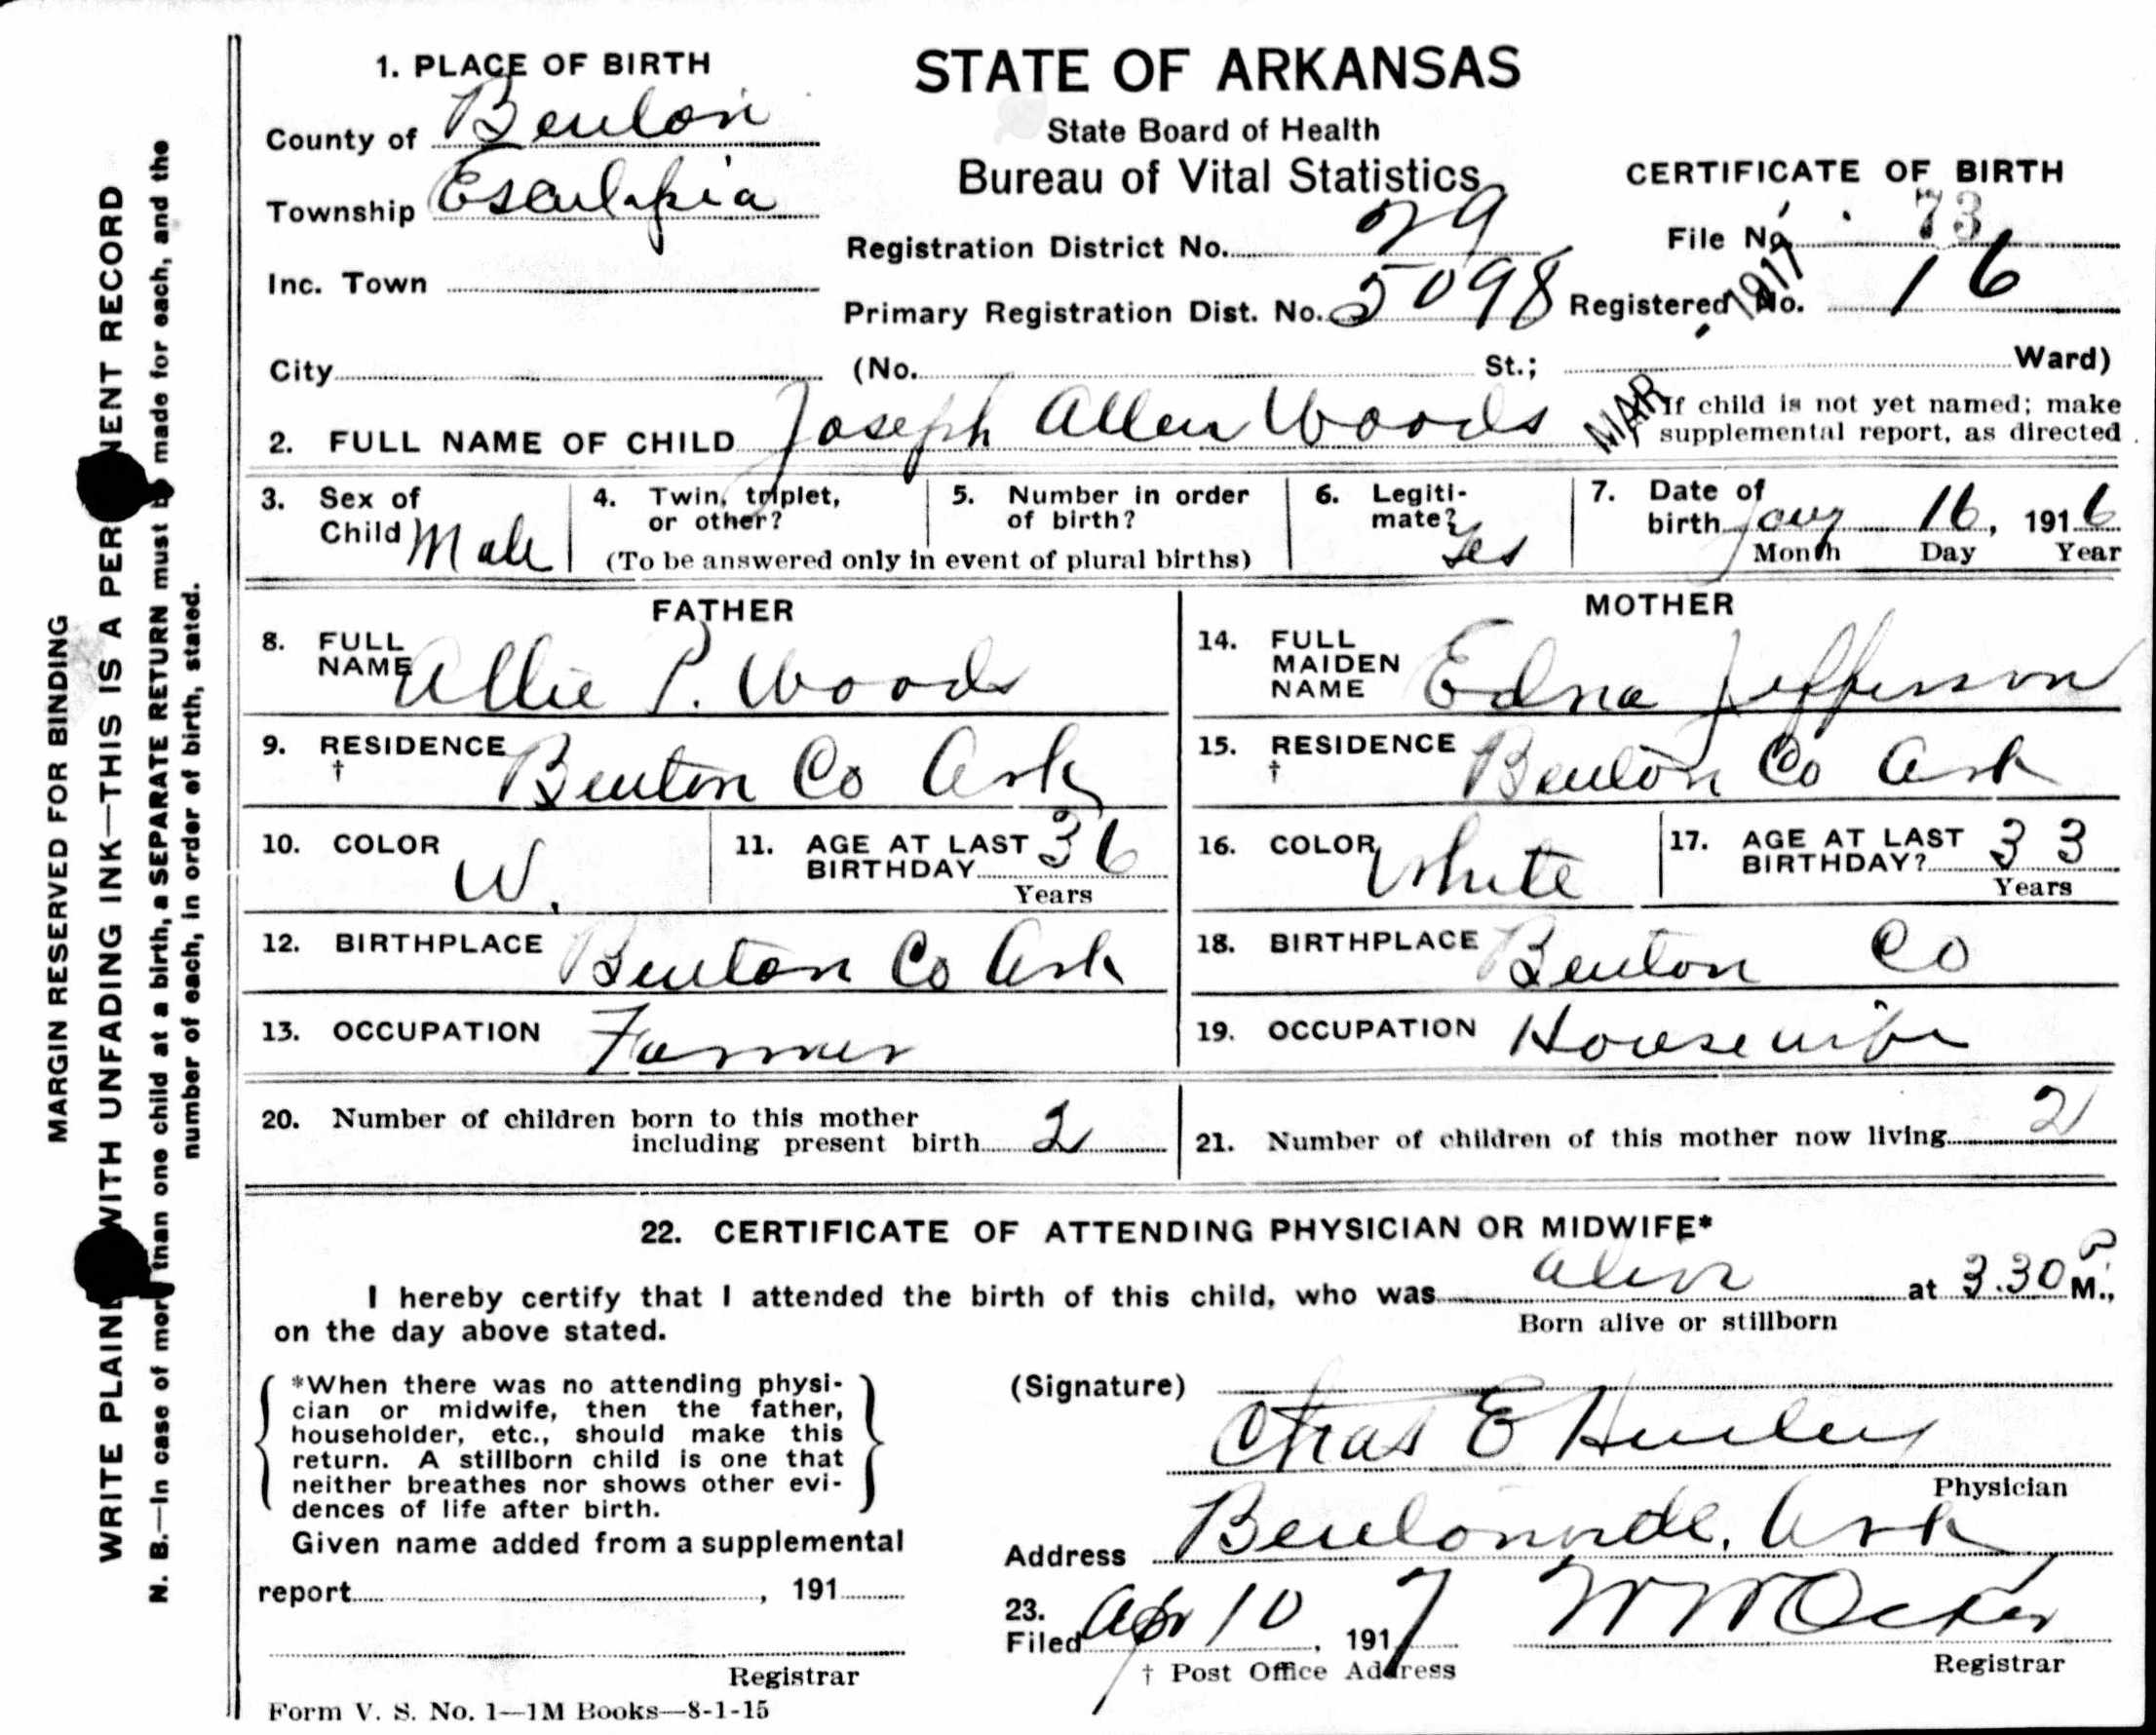 MARGIN RESERVED FOR BINDING
WRITE PLAINLY WITH UNFADING INK—THIS IS A PERMANENT RECORD
N. B.—In case of more than one child at a birth, a SEPARATE RETURN must be made for each, and the
number of each, in order of birth, stated.
1. PLACE OF BIRTH
County of Benton
Township Esculapia
Inc. Town
City
STATE OF ARKANSAS
State Board of Health
Bureau of Vital Statistics
CERTIFICATE OF BIRTH
Registration District No. 29
File No. 73
Primary Registration Dist. No. 5098
Registered No. 16
MAR 1917
(No. St.; Ward)
2. FULL NAME OF CHILD Joseph Allen Woods
If child is not yet named; make
supplemental report, as directed
3. Sex of
Child Male
4. Twin, triplet,
or other?
5. Number in order
of birth?
(To be answered only in event of plural births)
6. Legiti-
mate? Yes
7. Date of
birth 16, 1916
Month Day Year
FATHER
8. FULL
NAME Allie P. Woods
9. RESIDENCE Benton Co Ark
†
10. COLOR W.
11. AGE AT LAST
BIRTHDAY 36
Years
12. BIRTHPLACE Benton Co Ark
13. OCCUPATION Farmer
MOTHER
14. FULL
MAIDEN
NAME Edna Jefferson
15. RESIDENCE Benton Co Ark
†
16. COLOR White
17. AGE AT LAST
BIRTHDAY? 33
Years
18. BIRTHPLACE Benton Co
19. OCCUPATION Housewife
20. Number of children born to this mother
including present birth 2
21. Number of children of this mother now living 2
22. CERTIFICATE OF ATTENDING PHYSICIAN OR MIDWIFE*
I hereby certify that I attended the birth of this child, who was alive at 3.30 P M.,
Born alive or stillborn
on the day above stated.
*When there was no attending physi-
cian or midwife, then the father,
householder, etc., should make this
return. A stillborn child is one that
neither breathes nor shows other evi-
dences of life after birth.
Given name added from a supplemental
report , 191
Registrar
Form V. S. No. 1—1M Books—8-1-15
(Signature)
Chas E Hurley
Physician
Address Bentonville, Ark
23.
Filed Apr 10, 1917 W W
Registrar
† Post Office Address